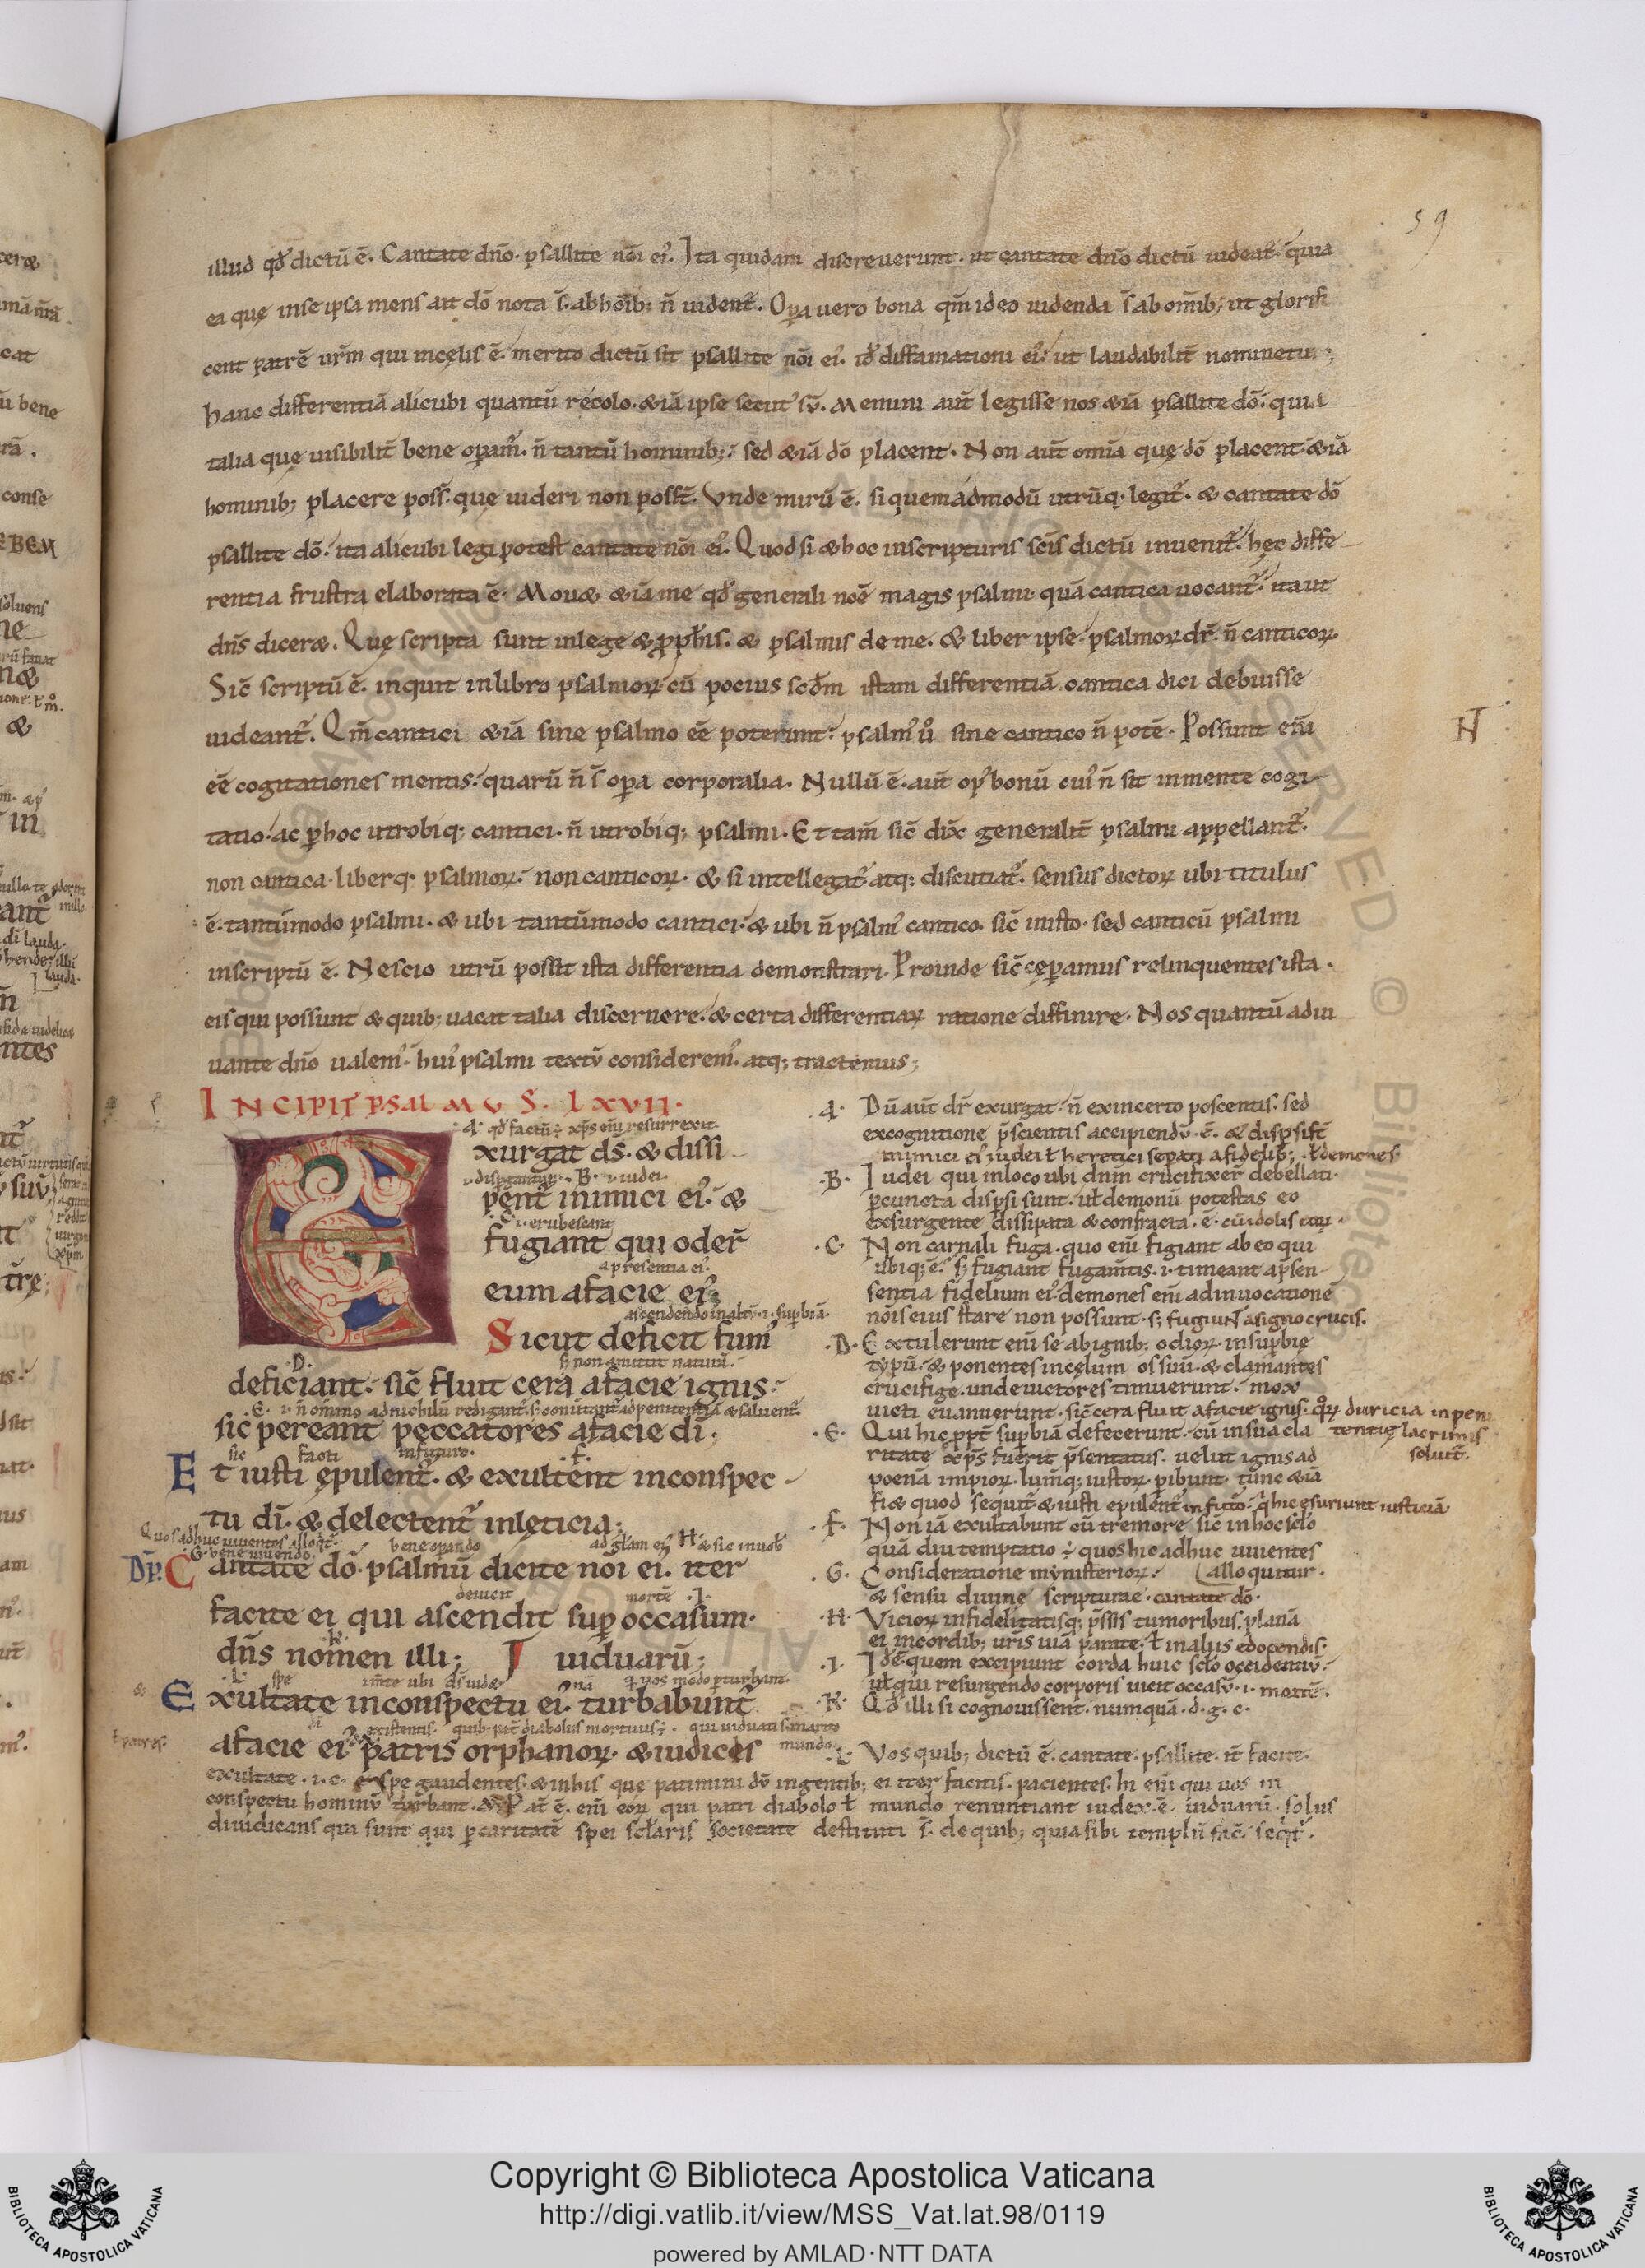 59
illud qđ dictū ē. Cantate dño. psallite nōi ei᾽. Ita quidam discreuerunt. ut cantate dño dictū uideat᷑. quia
ea quę inse ipsa mens ait dō nota s̄. abhōib; ñ uident᷑. Opa uero bona qm̄ ideo uidenda s̄ ab omīb; ut glorifi
cent patrē ur̄m qui incęlis ē. merito dictū sit psallite nōi ei᾽. id̄ diffamationi ei᾽. ut laudabilit᷑ nominetur;
hanc differentiā alicubi quantū recolo. &iā ipse secut᾽ sū. Memini aut̄ legisse nos &iā psallite dō. quia
talia quę uisibilit᷑ bene opam᷑. ñ tantū hominib; sed &iā dō placent. Non aut̄ omīa quę dō placent &iā
hominib; placere poss̄. quę uideri non poss̄t. Vnde mirū ē. si quemadmodū utrūq. legit᷑. & cantate dō
psallite dō. ita alicubi legi potest cantate nōi ei᾽. Quod si & hoc inscripturis scīs dictū inuenit᷑. hęc diffe
rentia frustra elaborata ē. Mou& &iā me qđ generali noē magis psalmi quā cantica uocant᷑. ita ut
dñs dicer&. Quę scripta sunt inlege & pph̄is. & psalmis de me. & liber ipse psalmoꝝ dr̄. ñ canticoꝝ.
Sic̄ scriptū ē. inquit inlibro psalmoꝝ cū pocius scd̄m istam differentiā cantica dici debuisse
uideant᷑. Qm̄ cantici &iā sine psalmo eē poterunt. psalm᾽ ů sine cantico ñ potē. Possunt eñi
N
eē cogitationes mentis. quarū ñ s̄ opa corporalia. Nullū ē. aut̄ op᾽ bonū cui᾽ ñ sit inmente cogi
tatio. ac phoc utrobiq; cantici. ñ utrobiq; psalmi. Et tam̄ sic̄ dix̄ generalit᷑ psalmi appellant᷑.
non cantica. liberq. psalmoꝝ. non canticoꝝ. & si intellegat᷑ atq; discutiat᷑. sensus dictoꝝ ubi titulus
ē. tantūmodo psalmi. & ubi tantūmodo cantici. & ubi ñ psalm᾽ cantico. sic̄ inisto. sed canticū psalmi
inscriptū ē. Nescio utrū possit ista differentia demonstrari. Proinde sic̄ cępamus relinquentes ista.
eis qui possunt & quib; uacat talia discernere. & certa differentiaꝝ ratione diffinire. Nos quantū adiu
uante dño ualem᾽. hui᾽ psalmi textū considerem᾽. atq; tractemus;
INCIPIT PSALMVS. LXVII.
A. qđ factū÷ xp̄s eñi resurrexit.
Exurgat ds̄. & dissi
dispgantur. B. i. iudei.
pent᷑ inimici ei᾽. &
C. i. erubescant
fugiant qui oder̄
apresentia ei᾽.
eum afacie ei᾽;
ascendendo inaltū. i. supbiā.
Sicut deficit fum᾽
D. s; non amittit naturā.
deficiant. sic̄ fluit cera afacie ignis.
E. i. ñ omīno adnichilū redigant᷑. s; conutant᷑ adpenitentiā & saluent᷑.
sic pereant peccatores afacie dī;
sic facti infuturo. F.
Et iusti ępulent᷑. & exultent inconspec
tu dī. & delectent᷑ inlęticia;
Quos adhuc uiuentes alloqt᷑.
G. bene uiuendo. bene opando ad głam ei᾽ H &sic inuob᾽
Dp̄. Cantate dō. psalmū dicite nōi ei᾽. iter
deuicit mortē. I.
facite ei qui ascendit sup occasum.
K.
dñs nomen illi; J uiduarū;
L. spe inte ubi ds̄ uidet qi uos modo pturbant.
Exultate inconspectu ei᾽. turbabunt᷑
existentis. quib. pat᷑ diabolus mortuus÷. qui uiduatis marito mundo
afacie ei᾽ patris orphanoꝝ. & iudices
A. Dū aut̄ dr̄ exurgat. ñ exincerto poscentis. sed
excognitione p̄scientis accipiendū. ē. & dispsist̄
inimici ei᾽ iudei ł heretici sepati afidelib; . ł demones.
B. Iudei qui inloco ubi dnm̄ crucifixer̄ debellati.
pcuncta dispsi sunt. uł demonū potestas eo
exsurgente dissipata & confracta. ē. cū idolis eoꝝ.
C. Non carnali fuga. quo eñi figiant ab eo qui
ubiq; ē. s; fugiant fugam̄tis. i. timeant apsen
sentia fidelium ei᾽ demones eñi adinuocatione
nōis eius stare non possunt. s; fugiunt̄ a signo crucis.
D. Extulerunt eñi se abignib; odioꝝ. insupbie
typū. & ponentes incęlum os suū. & clamantes
crucifige. unde uictores timuerunt. mox
uicti euanuerunt. sic̄ cera fluit afacie ignis. qoꝝ duricia inpeni
tentię lacrimis
soluit᷑.
E. Qui hic ppt᷑ supbiā defecerunt. cū insua cla
ritate xp̄s fuerit p̄sentatus. uelut ignis ad
poenā impioꝝ. lum̄q; iustoꝝ. pibunt. tunc &iā
fi& quod sequit᷑ & iusti epulent᷑ in futo. qi hic esuriunt iusticiā
F. Non iā exultabunt cū tremore sic̄ inhoc scło
quā diu temptatio ÷ quos hic adhuc uiuentes
alloquitur.
G. Consideratione mynisterioꝝ.
& sensu diuinę scripturae. cantate dō.
H. Vicioꝝ infidelitatisq; p̄ssis tumoribus. planā
ei incordib; ur̄is uiā parate. ł in alus edocendis.
I. Idē quem excipiunt corda huic scło occidentiū.
uł qui resurgendo corporis uicit occasū. i. mortē.
K. Qđ illi si cognouissent. numquā. d. g. c.
L. Vos quib; dictū ē. cantate. psallite. it᷑ facite.
exultate. i. e. in spe gaudentes. & inhis que patimini dū ingentib; ei iter facitis. pacientes. hi eñi qui uos in
conspectu hominū turbant. Pat᷑ ē. eñi eoꝝ qui patri diabolo ł mundo renuntiant iudex ē. uiduarū. solus
diiudicans qui sunt qui pcaritatē spei scłaris societate destituti s̄. de quib; quia sibi templū fac̄. seqt᷑.
Copyright © Biblioteca Apostolica Vaticana
http://digi.vatlib.it/view/MSS_Vat.lat.98/0119
powered by AMLAD·NTT DATA
BIBLIOTECA APOSTOLICA VATICANA
BIBLIOTECA APOSTOLICA VATICANA